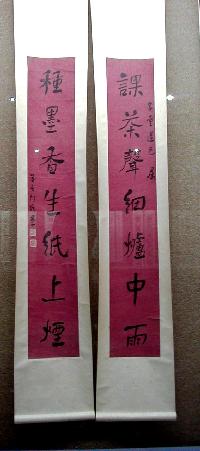 課茶聲細爐中雨
種墨香生紙上煙